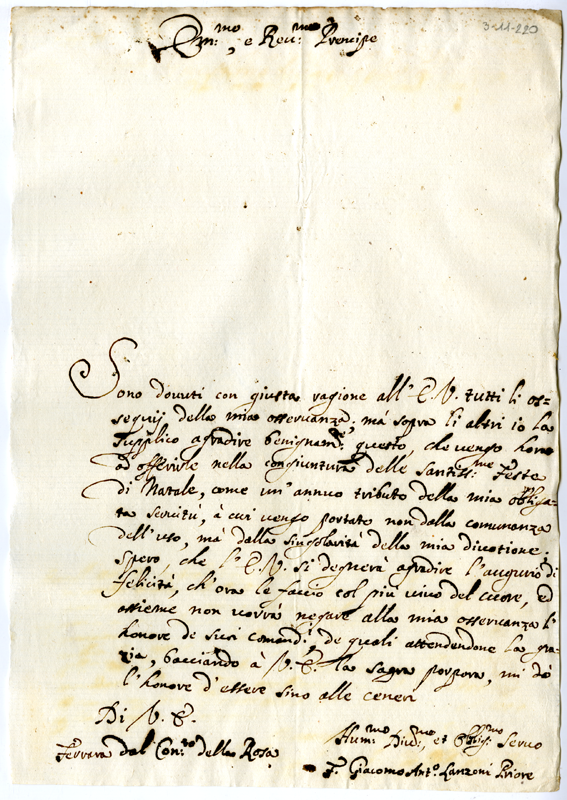 3-11-220
Em:mo, e Reu:mo Prencipe
Sono douuti con giusta ragione all'E.V. tutti li os=
sequij della mia osseruanza; mà sopra li altri io la
supplico agradire benignam:te questo, che uengo hora
à offerirle nella congiuntura delle Santiss:me Feste
di Natale, come un'annuo tributo della mia obbliga-
ta seruitù, à cui uengo portato non dalla comunanza
dell'uso, mà dalla singolarità della mia diuotione;
spero, che l'E.V. si degnerà agradire l'augurio di
felicità, ch'ora le faccio col più uiuo del cuore, ed
assieme non uorrà negare alla mia osseruanza l'
honore de suoi comandi, de quali attendendone la gra-
zia, bacciando à V.E. la sagra porpora, mi dò
l'honore d'essere sino alle ceneri
Di V.E.
Ferrara dal Con:to della Rosa
Hum:mo Diu:mo, et Obblig:mo Seruo
F. Giacomo Ant.o Lanzoni Priore